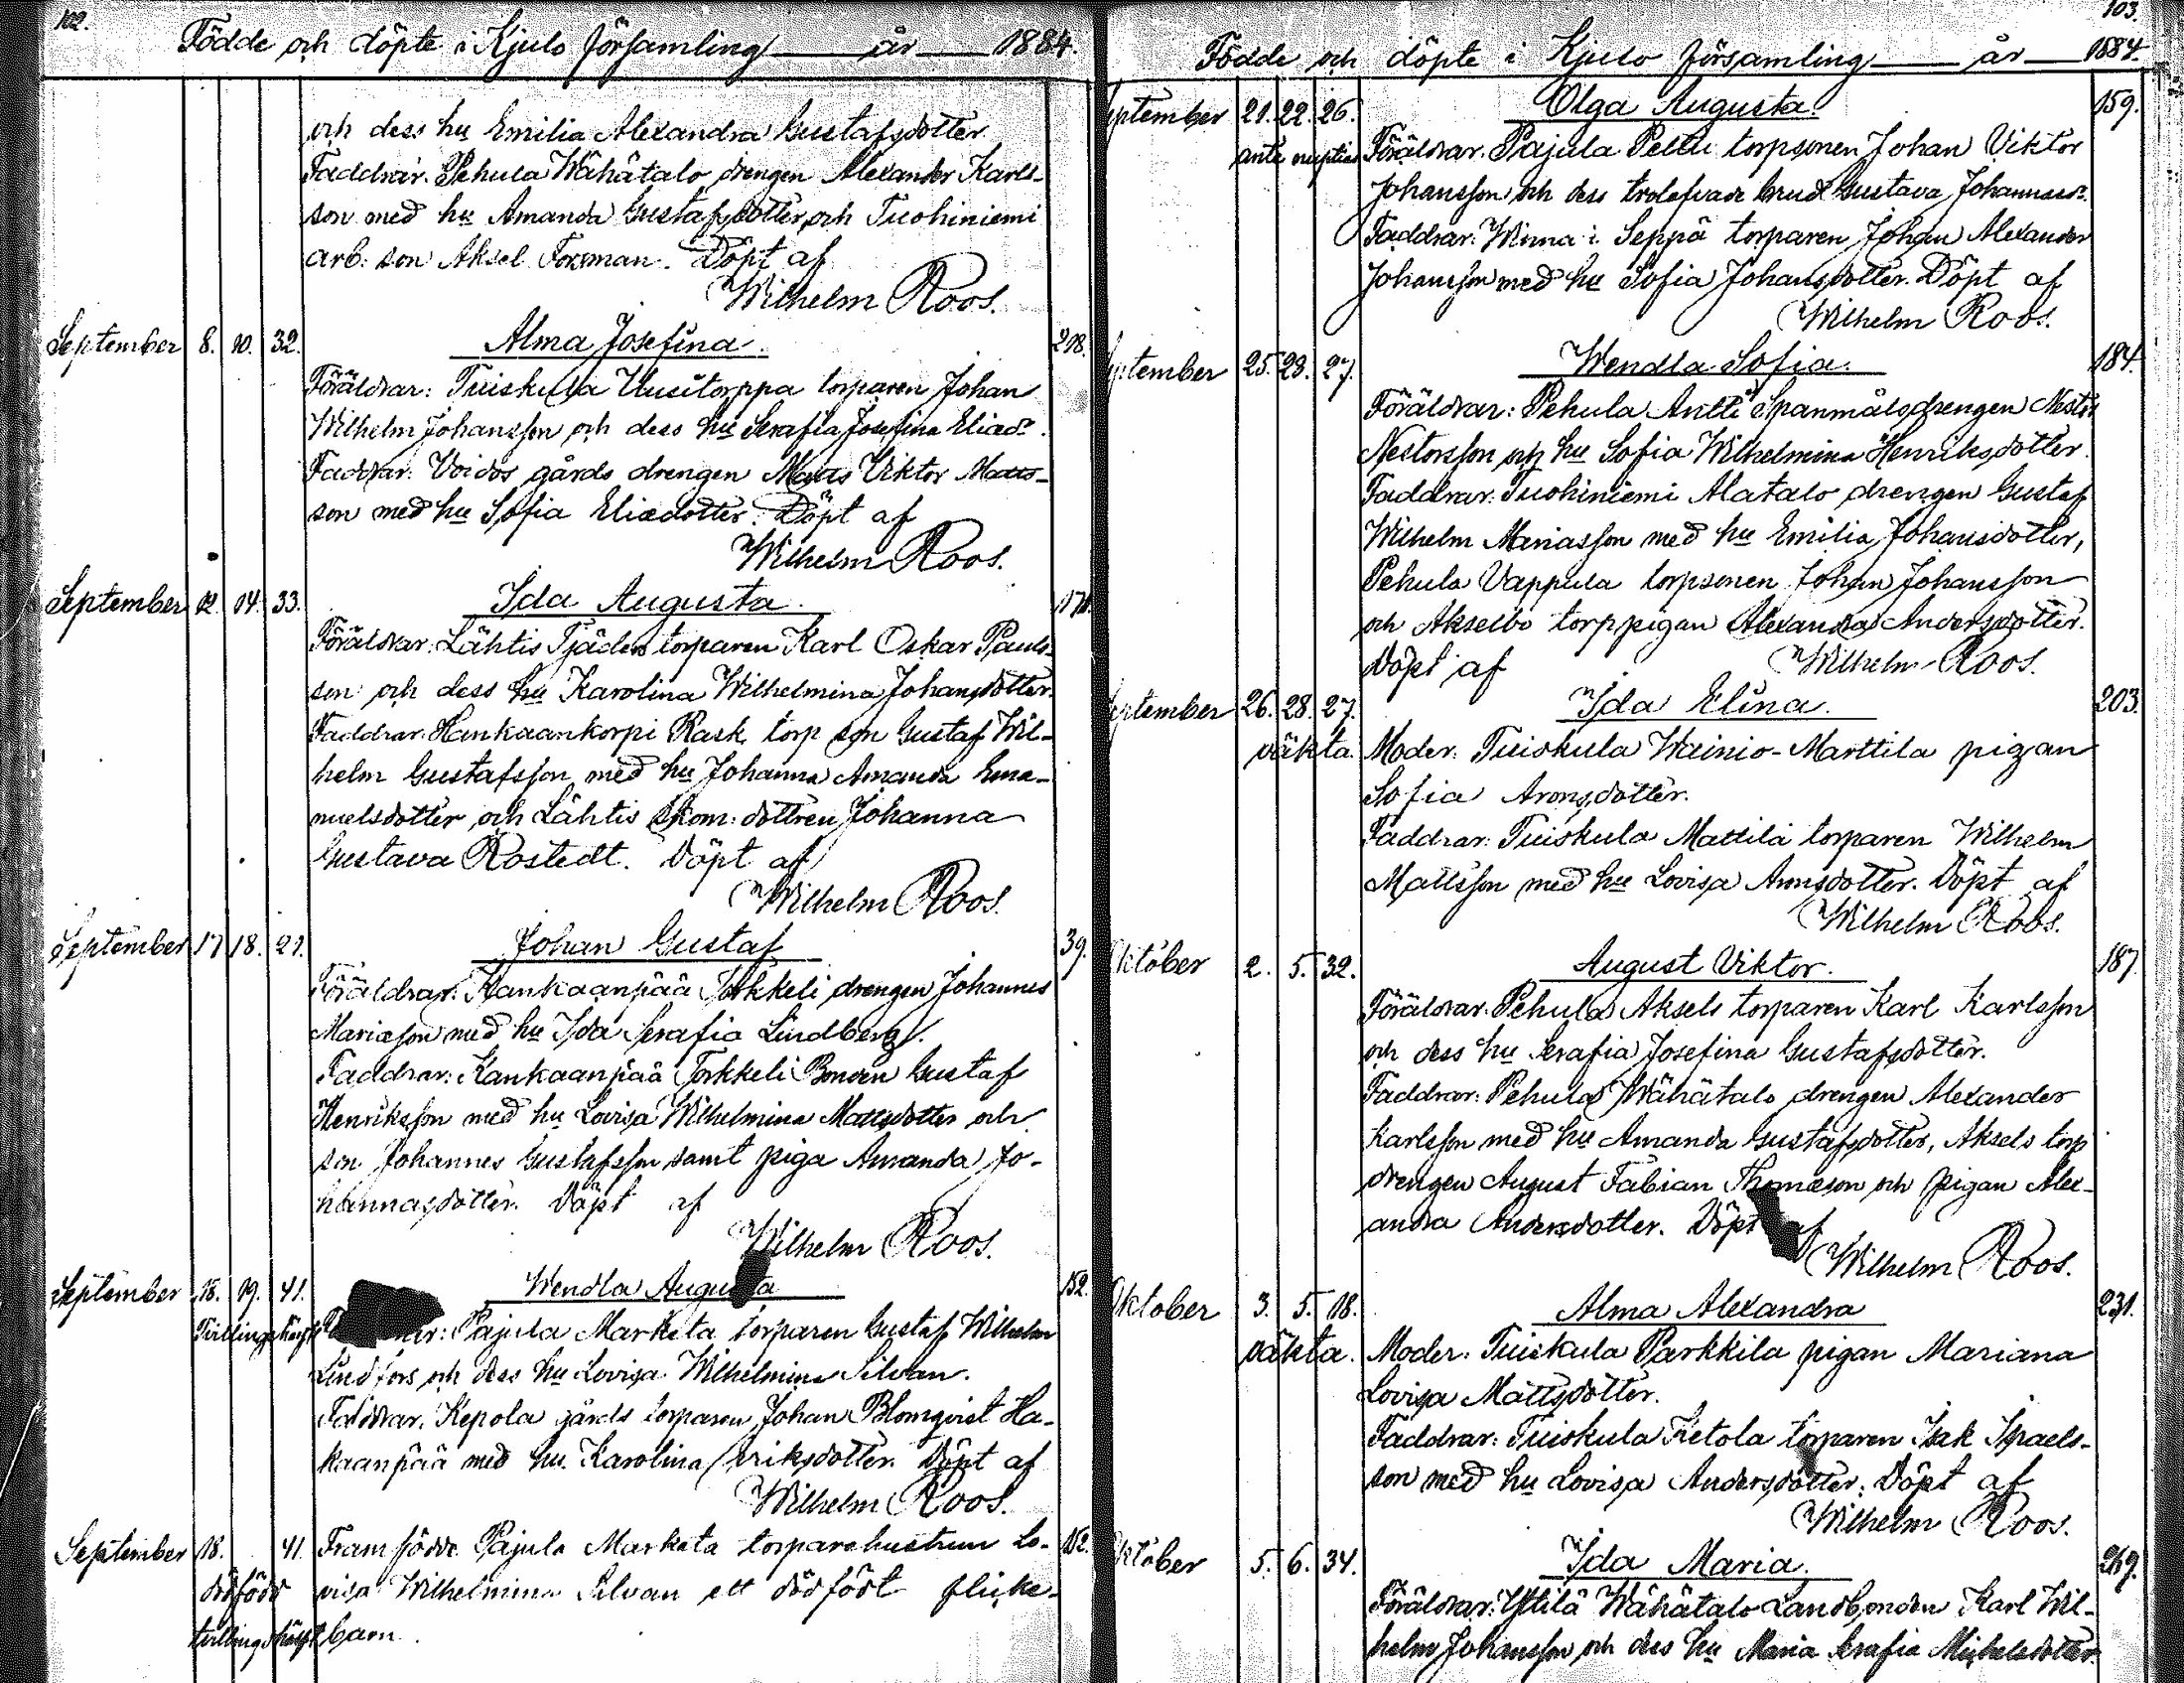 102.
Födde och döpte i Kjulo församling år 1884.
och dess hu Emilia Alexandra Gustafsdotter.
Faddrar: Pehula Wähätalo drengen Alexander Karls-
son med hu Amanda Gustafsdotter och Tuohiniemi
arb: son Aksel Forsman. Döpt af
Wilhelm Roos.
September 8. 10. 32. Alma Josefina. 218.
Föräldrar: Tuiskula Uusitorppa torparen Johan
Wilhelm Johansson och dess hu Serafia Josefina Eliæd:r.
Faddrar: Voidos gårds drengen Matts Viktor Matts-
son med hu Sofia Eliædotter. Döpt af
Wilhelm Roos.
September 12. 14. 33. Ida Augusta. 171.
Föräldrar: Lähtis Tjäder torparen Karl Oskar Pauls-
son och dess hu Karolina Wilhelmina Johansdotter.
Faddrar: Hankaankorpi Rask torp son Gustaf Wil-
helm Gustafsson med hu Johanna Amanda Ema-
nuelsdotter och Lähtis skom: dottren Johanna
Gustava Rostedt. Döpt af
Wilhelm Roos.
September 17 18. 21. Johan Gustaf 39.
Föräldrar: Kankaanpää Torkkeli drengen Johannes
Mariæson med hu Ida Serafia Lindberg.
Faddrar: Kankaanpää Torkkeli Bonden Gustaf
Henriksson med hu Lovisa Wilhelmina Mattsdotter och
son Johannes Gustafsson samt piga Amanda Jo-
hannæsdotter. Döpt af
Wilhelm Roos.
September 18. 19. 41. Wendla Augusta 152.
Tvillingshälft Pajula Marketa torparen Gustaf Wilhelm
Lindfors och dess hu Lovisa Wilhelmina Silvan.
Faddrar: Kepola gårds torparen Johan Blomqvist Ha-
kaanpää med hu. Karolina Eriksdotter. Döpt af
Wilhelm Roos.
September 18. 41. Framfödde Pajula Marketa torparehustrun Lo- 152.
dödfödd visa Wilhelmina Silvan ett dödfödt flicke-
tvillingshälft barn.
103.
Födde och döpte i Kjulo församling år 1884.
September 21. 22. 26. Olga Augusta. 159.
ante nuptias Föräldrar: Pajula Pelttu torpsonen Johan Viktor
Johansson och dess trolofvade brud Gustava Johannæsd:r.
Faddrar: Winna i Seppä torparen Johan Alexander
Johansson med hu Sofia Johansdotter. Döpt af
Wilhelm Roos.
September 25. 28. 27. Wendla Sofia. 184.
Föräldrar: Pehula Antti Spanmålsdrengen Nestor
Nestorsson och hu Sofia Wilhelmina Henriksdotter.
Faddrar: Tuohiniemi Alatalo drengen Gustaf
Wilhelm Mariasson med hu Emilia Johansdotter,
Pehula Vappula torpsonen Johan Johansson
och Akselbo torppigan Alexandra Andersdotter.
Döpt af Wilhelm Roos.
September 26. 28. 27. Ida Elina. 203.
oäkta. Moder: Tuiskula Wainio-Marttila pigan
Sofia Aronsdotter.
Faddrar: Tuiskula Mattila torparen Wilhelm
Mattsson med hu Lovisa Aronsdotter. Döpt af
Wilhelm Roos.
Oktober 2. 5. 32. August Viktor. 187.
Föräldrar: Pehula Aksels torparen Karl Karlsson
och dess hu Serafia Josefina Gustafsdotter.
Faddrar: Pehula Wähätalo drengen Alexander
Karlsson med hu Amanda Gustafsdotter, Aksels torp
drengen August Fabian Thomæson och pigan Alex-
andra Andersdotter. Döpt af
Wilhelm Roos.
Oktober 3. 5. 18. Alma Alexandra 231.
oäkta. Moder: Tuiskula Parkkila pigan Mariana
Lovisa Mattsdotter.
Faddrar: Tuiskula Ketola torparen Isak Israels-
son med hu Lovisa Andersdotter. Döpt af
Wilhelm Roos.
Oktober 5. 6. 34. Ida Maria. 269.
Föräldrar: Yttilä Wähätalo Landbonden Karl Wil-
helm Johansson och dess hu Maria Serafia Michelsdotter.